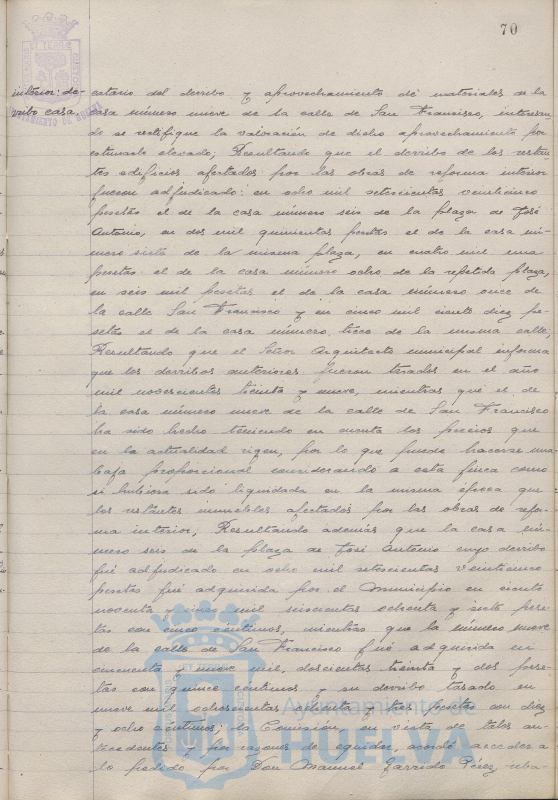 70
interior: de-
rribo casa
catario del derribo y aprovechamiento de materiales de la
casa número nueve de la calle de San Francisco, interesan
do se rectifique la valoración de dicho aprovechamiento por
estimarlo elevado; Resultando que el derribo de los restan
tes edificios afectados por las obras de reforma interior
fueron adjudicado: en ocho mil setecientas veinticinco
pesetas el de la casa número seis de la plaza de José
Antonio, en dos mil quinientas pesetas el de la casa nú-
mero siete de la misma plaza, en cuatro mil una
pesetas el de la casa número ocho de la repetida plaza,
en seis mil pesetas el de la casa número once de
la calle San Francisco y en cinco mil ciento diez pe-
setas el de la casa número trece de la misma calle,
Resultando que el Señor Arquitecto municipal informa
que los derribos anteriores fueron tasados en el año
mil novecientos treinta y nueve, mientras que el de
la casa número nueve de la calle de San Francisco
ha sido hecho teniendo en cuenta los precios que
en la actualidad rigen, por lo que puede hacerse una
baja proporcional considerando a esta finca como
si hubiera sido liquidada en la misma época que
los restantes inmuebles afectados por las obras de refor-
ma interior; Resultando además que la casa nú-
mero seis de la plaza de José Antonio cuyo derribo
fué adjudicado en ocho mil setecientas veinticinco
pesetas fué adquirida por el Municipio en ciento
noventa y cinco mil seiscientas ochenta y siete pese
tas con cinco céntimos, mientras que la número nueve
de la calle de San Francisco fué adquirida en
cincuenta y nueve mil, doscientas treinta y dos pese-
tas con quince céntimos y su derribo tasado en
nueve mil ochocientas ochenta y tres pesetas con diez
y ocho céntimos; la Comisión, en vista de tales an-
tecedentes y por razones de equidad, acordó acceder a
lo pedido por Don Manuel Garrido Pérez reba-
Ayuntamiento de
HUELVA